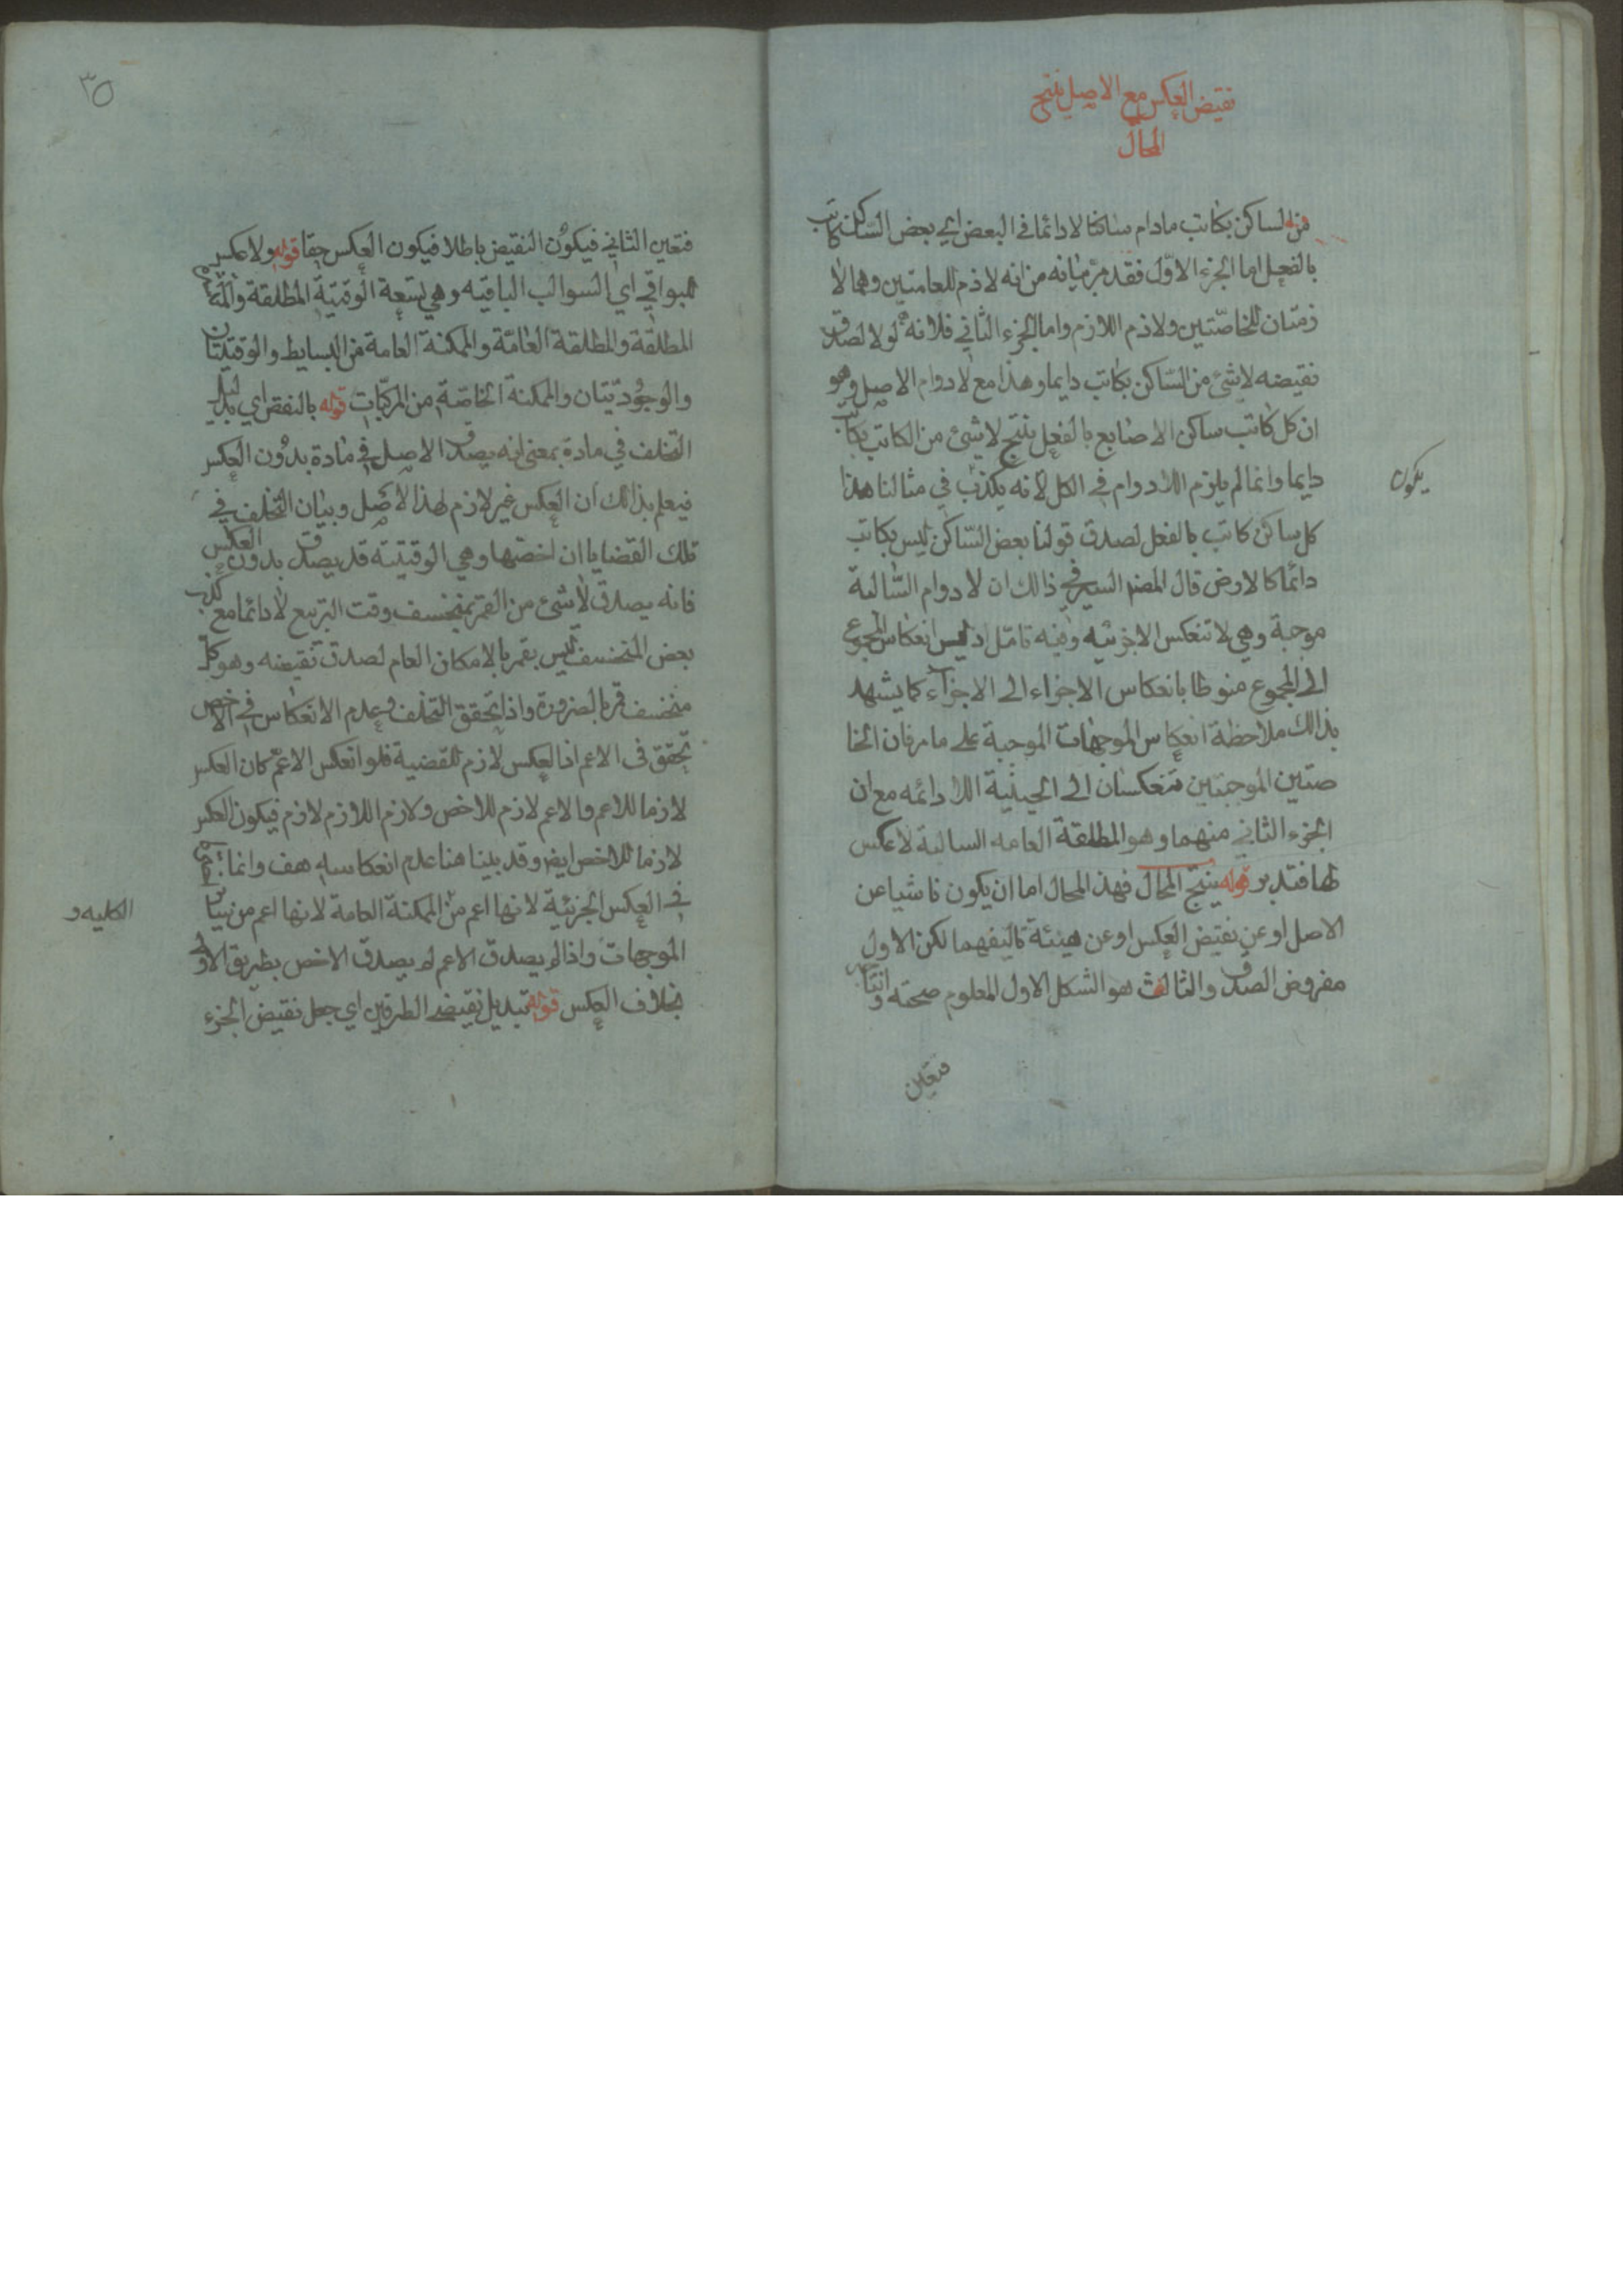 نقيض العكس مع الاصل ينتج
المحال
من الساكن بكاتب مادام ساكنا لا دائما في البعض اي بعض الساكن كاتب
بالفعل اما الجزء الاول فقد مر بيانه من انه لازم للعامتين وهما لا
زمتان للخاصتين ولازم اللازم لازم واما الجزء الثاني فلانه لو لا لصدق
نقيضه لاشئ من الساكن بكاتب دايما وهذا مع لا دوام الاصل وهو
ان كل كاتب ساكن الاصابع بالفعل ينتج لاشئ من الكاتب بكاتب
دايما وانما لم يلزم اللادوام في الكل لانه يكذب في مثالنا هذا
يكون
كل ساكن كاتب بالفعل لصدق قولنا بعض الساكن ليس بكاتب
دائما كالارض قال المص السر في ذالك ان لا دوام السالبة
موجبة وهي لا تنعكس الا جزئيه وفيه تامل اذ ليس انعكاس المجموع
الى المجموع منوطا بانعكاس الاجزاء الى الاجزاء كما يشهد
بذالك ملاحظة انعكاس الموجهات الموجبة على ما مر فان الخا
صتين الموجبتين تنعكسان الى الحينية اللادائمه مع ان
الجزء الثاني منهما وهو المطلقة العامه السالبة لا عكس
لها فتدبر قوله ينتج المحال فهذ المحال اما ان يكون ناشيا عن
الاصل او عن نقيض العكس او عن هيئة تاليفهما لكن الاول
مفروض الصدق والثالث هو الشكل الاول المعلوم صحته وانتاجه
فتعين
٣٥
فتعين الثاني فيكون النقيض باطلا فيكون العكس حقا قوله ولا عكس
للبواقي اي السوالب الباقيه وهي تسعة الوقتية المطلقة والمنتشرة
المطلقة والمطلقة العامة والممكنة العامة من البسايط والوقتيتان
والوجوديتان والممكنة الخاصة من المركبات قوله بالنقض اي بدليل
التخلف في مادة بمعنى انه يصدق الاصل في مادة بدون العكس
فيعلم بذالك ان العكس غير لازم لهذا الاصل وبيان التخلف في
تلك القضايا ان اخصها وهي الوقتية قد يصدق بدون العكس
فانه يصدق لاشئ من القمر بمنخسف وقت التربيع لا دائما مع كذب
بعض المنخسف ليس بقمر بالامكان العام لصدق نقيضه وهو كل
منخسف قمر بالضرورة واذا تحقق التخلف وعدم الانعكاس في الاخص
تحقق في الاعم اذ العكس لازم للقضية فلو انعكس الاعم كان العكس
لازما للاعم والاعم لازم للاخص ولازم اللازم لازم فيكون العكس
لازما للاخص ايض وقد بينا هنا عدم انعكاسه هف وانما
في العكس الجزئية لانها اعم من الممكنة العامة لانها اعم من سائر
الكليه و
الموجهات واذا لم يصدق الاعم لم يصدق الاخص بطريق الاولى
بخلاف العكس قوله تبديل نقيضي الطرفين اي جعل نقيض الجزء